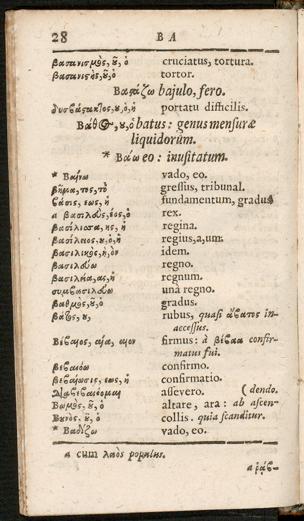 28 B A
βασανισμὸς, ȣ͂, ὁ cruciatus, tortura.
βασανιστὴς, ȣ͂, ὁ tortor.
Βαστάζω bajulo, fero.
δυσβάστακτος, ȣ, ὁ, ἡ portatu difficilis.
Βάθος, ȣ, ὁ batus: genus mensuræ
liquidorum.
* Βάω eo: inusitatum.
* Βαίνω vado, eo.
βῆμα, τος, τὸ gressus, tribunal.
βάσις, εως, ἡ fundamentum, gradus
a βασιλεὺς, έος, ὁ rex.
βασίλισσα, ης, ἡ regina.
βασίλειος, ȣ, ὁ, ἡ regius, a, um.
βασιλικὸς, ὴ, ὸν idem.
βασιλεύω regno.
βασιλεία, ας, ἡ regnum.
συμβασιλεύω una regno.
βαθμὸς, ȣ͂, ὁ gradus.
βάτος, ȣ, rubus, quasi ἄβατος in-
accessus.
Βέβαιος, αία, αιον firmus: à βέβαα confir-
matus fui.
βεβαιόω confirmo.
βεβαίωσις, εως, ἡ confirmatio.
διαβεβαιόομαι assevero. ( dendo.
Βωμὸς, ȣ͂, ὁ altare, ara: ab ascen-
Βȣνὸς, ȣ͂, ὁ collis. quia scanditur.
* Βαδίζω vado, eo.
a cum λαὸς populus.